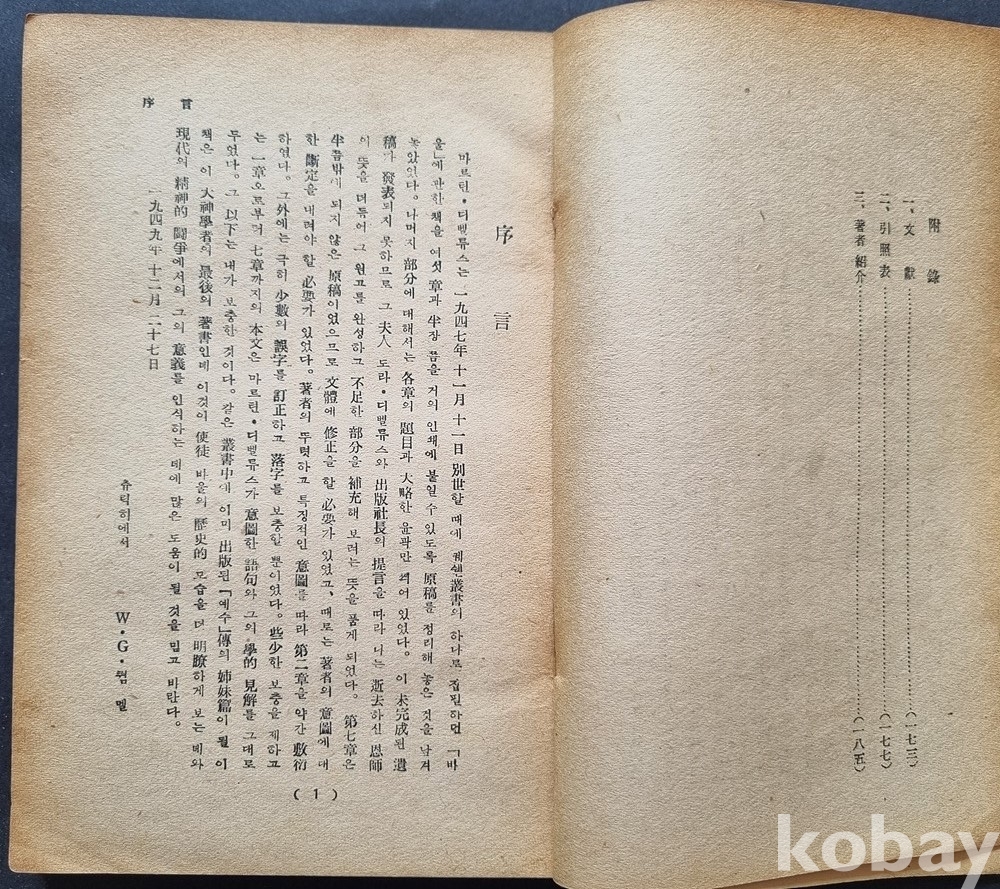 附錄
一、文獻……(一七三)
二、引照表……(一七七)
三、著者紹介……(一八五)
一
序言
序言
마르틴・디벨류스는 一九四七年 十一月 十一日 別世할 때에 궤쉔叢書의 하나로 집필하던 「바
울」에 관한 책을 여섯 章과 半장 쯤을 거의 인쇄에 붙일 수 있도록 原稿를 정리해 놓은 것을 남겨
놓았었다. 나머지 部分에 대해서는 各章의 題目과 大略한 윤곽만 되어 있었다. 이 未完成된 遺
稿가 發表되지 못하므로 그 夫人 도라・디벨류스와 出版社長의 提言을 따라 나는 逝去하신 恩師
의 뜻을 더듬어 그 원고를 완성하고 不足한 部分을 補充해 보려는 뜻을 품게 되었다. 第七章은
半쯤밖에 되지 않은 原稿이었으므로 文體에 修正을 할 必要가 있었고, 때로는 著者의 意圖에 대
한 斷定을 내려야 할 必要가 있었다. 著者의 뚜렷하고 특징적인 意圖를 따라 第二章을 약간 敷衍
하였다. 그 外에는 극히 少數의 誤字를 訂正하고 落字를 보충할 뿐이었다. 些少한 보충을 제하고
는 一章으로부터 七章까지의 本文은 마르틴・디벨류스가 意圖한 語句와 그의 學的 見解를 그대로
두었다. 그 以下는 내가 보충한 것이다. 같은 叢書中에 이미 出版된 「예수」傳의 姉妹篇이 될 이
책은 이 大神學者의 最後의 著書인데 이것이 使徒 바울의 歷史的 모습을 더 明瞭하게 보는 데와
現代의 精神的 鬪爭에서의 그의 意義를 인식하는 데에 많은 도움이 될 것을 믿고 바란다.
一九四九年 十二月 二十七日
츄릭히에서 W・G・큄멜
(1)
kobay